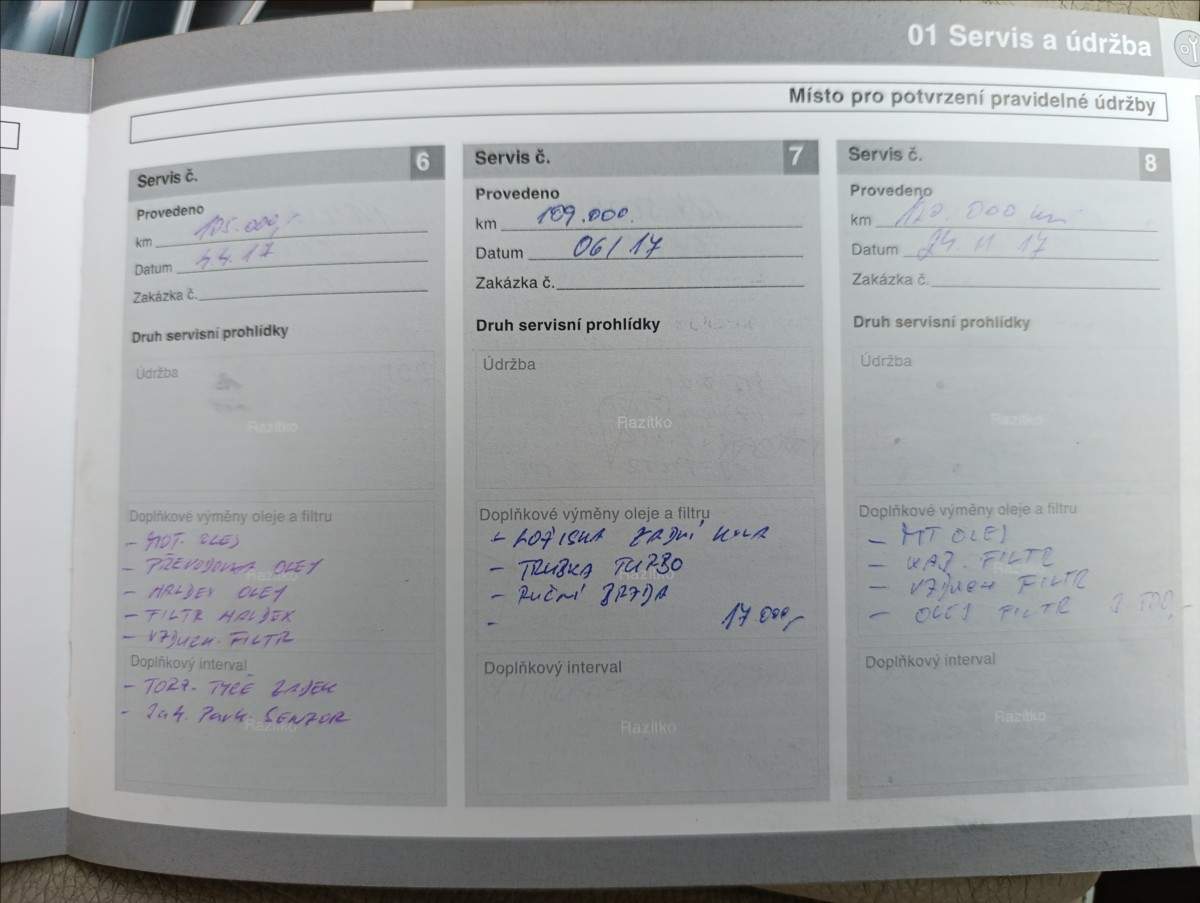 01 Servis a údržba
Místo pro potvrzení pravidelné údržby
Servis č. 6
Provedeno
km 105.000,-
Datum 4.4.17
Zakázka č.
Druh servisní prohlídky
Údržba
Razítko
Doplňkové výměny oleje a filtru
- MOT. OLEJ
- PŘEVODOVKA OLEJ
Razítko
- HALDEX OLEJ
- FILTR HALDEX
- VZDUCH. FILTR
Doplňkový interval
- TORZ. TYČĚ ZADEK
- Zak. Park. SENZOR
Razítko
Servis č. 7
Provedeno
km 109.000.
Datum 06/17
Zakázka č.
Druh servisní prohlídky
Údržba
Razítko
Doplňkové výměny oleje a filtru
- LOŽISKA ZADNÍ KOLA
- TRUBKA TURBO
Razítko
- RUČNÍ BRZDA
- 17 000,-
Doplňkový interval
Razítko
Servis č. 8
Provedeno
km 120.000 km
Datum 24 11 17
Zakázka č.
Druh servisní prohlídky
Údržba
Razítko
Doplňkové výměny oleje a filtru
- MT OLEJ
- KAB. FILTR
Razítko
- VZDUCH FILTR
- OLEJ FILTR
Doplňkový interval
Razítko